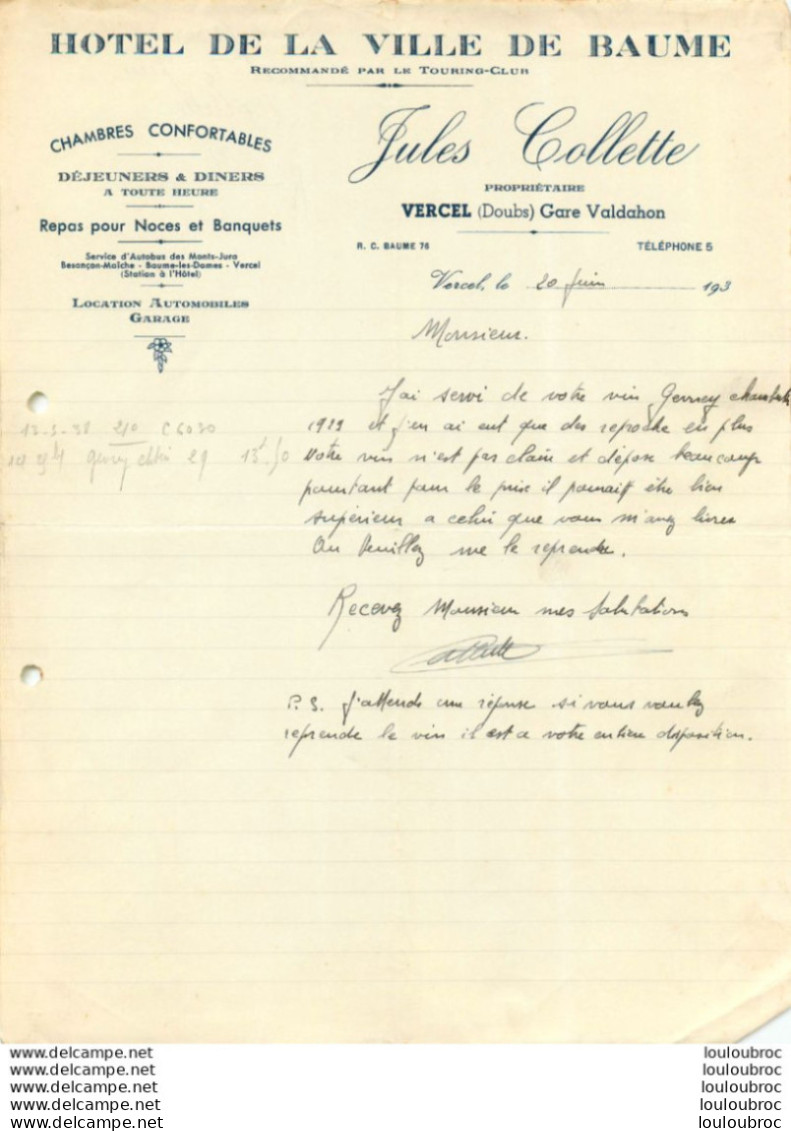 HOTEL DE LA VILLE DE BAUME
RECOMMANDÉ PAR LE TOURING-CLUB
CHAMBRES CONFORTABLES
DÉJEUNERS & DINERS
A TOUTE HEURE
Repas pour Noces et Banquets
Service d'Autobus des Monts-Jura
Besançon-Maîche - Baume-les-Dames - Vercel
(Station à l'Hôtel)
LOCATION AUTOMOBILES
GARAGE
Jules Collette
PROPRIÉTAIRE
VERCEL (Doubs) Gare Valdahon
R. C. BAUME 76
TÉLÉPHONE 5
Vercel, le 20 Juin 193
Monsieur.
J'ai servi de votre vin Gevrey chambertin
1929 et j'en ai eut que des reproche en plus
Votre vin n'est pas clair et dépose beaucoup
pourtant pour le prix il pourrait être bien
supérieur a celui que vous m'avez livrer
Ou Veuillez me le reprendre.
Recevez Monsieur mes Salutations
Collette
P. S. J'attends une réponse si vous voulez
reprendre le vin il est a votre entière disposition.
13-5-38 210 C6030
29 13f50
www.delcampe.net
www.delcampe.net
www.delcampe.net
www.delcampe.net
www.delcampe.net
louloubroc
louloubroc
louloubroc
louloubroc
louloubroc